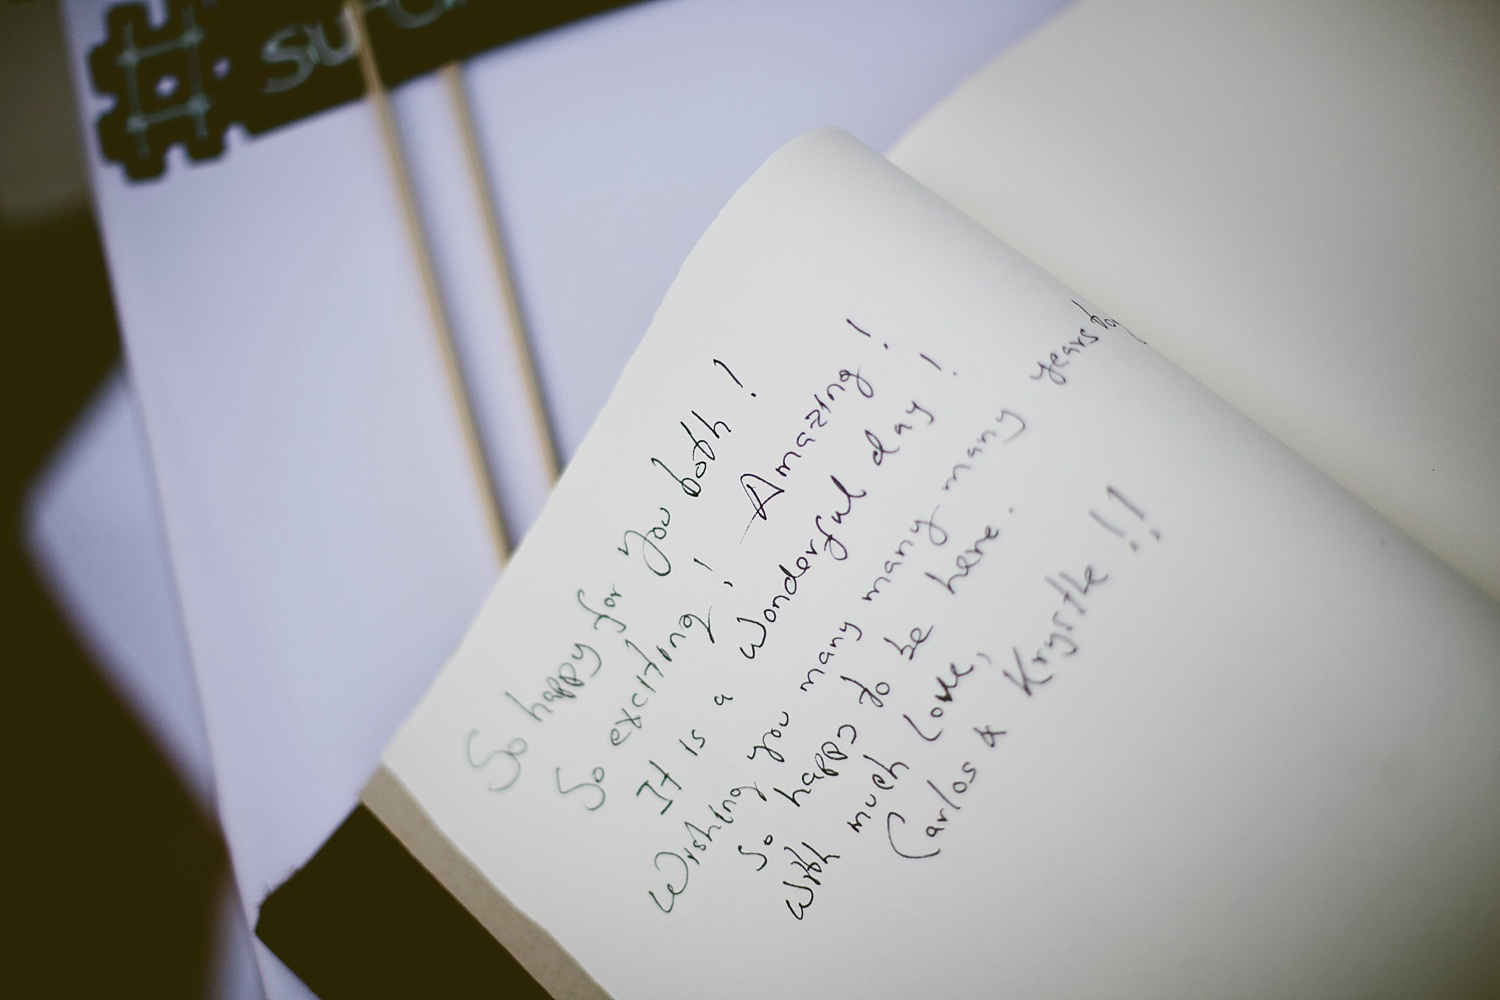 So happy for you both!
So exciting! Amazing!
It is a wonderful day!
Wishing you many many many many years
So happy to be here.
With much love,
Carlos & Krystle!!